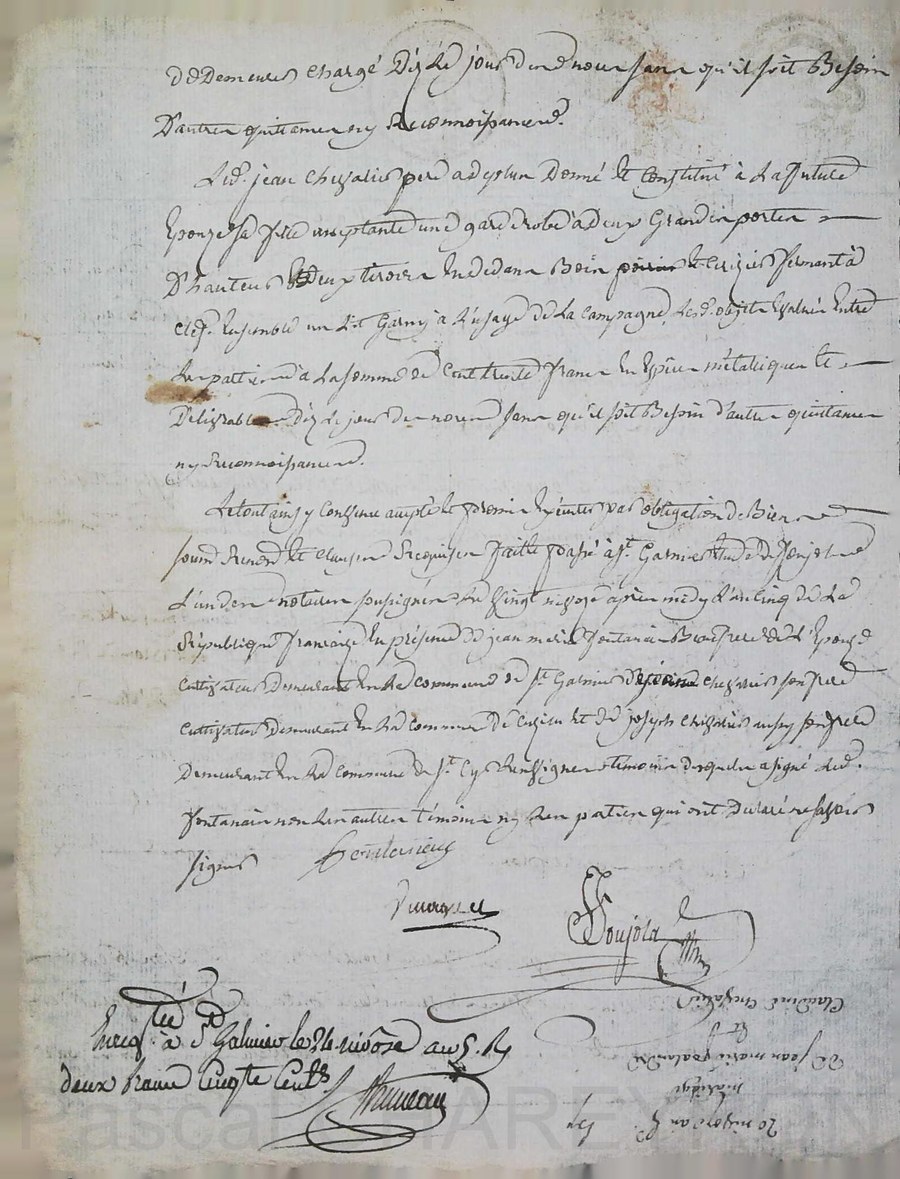 de Demeurer chargé Dez Le jour de noces sans qu'il soit Besoin
D'autres quittances ny Reconnoissances.
Led. jean chevalier pere a de plus Donné et Constitué à La future
Epouze sa fille acceptante une garderobe à deux Grandes portes
D'hauteur et deux tiroirs En dedans Bois et Cerizier fermant à
clef. Ensemble un Lit Garny à L'uzage de La Campagne, Lesd. objets Evalués Entre
Les parties à La somme de Cent trente francs En Espèces métalliques et
Délivrables Dez Le jour de noces sans qu'il soit Besoin d'autres quittances
ny Reconnoissances.
Le Contenu cy Dessus accepté et promis Exécuter par obligation de Biens
soum Renon et clauses Requises fait et passé à St Galmier Etude de Soujol
L'un des notaires soussignés Le vingt nivose après midy L'an cinq de La
République francaise En présence de jean marie fontanais Beaufrere de L'Epouze
cultivateur Demeurant En La commune de St Galmier chevalier son frere
cultivateur Demeurant En La commune de Cuzieu et de joseph chevalier aussy son frere
Demeurant En La Commune de St Cyr Les Vignes témoins desquels a signé Led.
fontanais non Les autres témoins ny Les parties qui ont Déclaré ne savoir
signer
Soujola
Enregtré à St Galmier le 24 nivose an 5. R
deux francs Cinqte Cents
20 nivose an 5.
mariage
de jean marie
et
Claudine chevalier
Pascal CHAREYRON